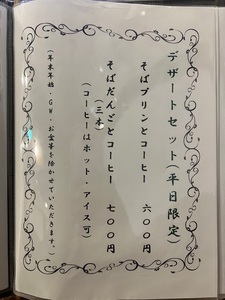 デザートセット(平日限定)
そばプリンとコーヒー 六〇〇円
そばだんごとコーヒー 七〇〇円
(三本)
(コーヒーはホット・アイス可)
(年末年始・GW・お盆等を除かせていただきます。)